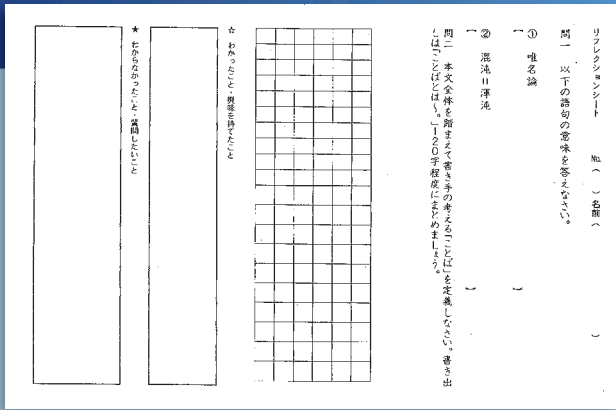 リフレクションシート　No.（　　）名前（　　　　　　）
問一　以下の語句の意味を答えなさい。
①　唯名論
【　　　　　　　　　　】
②　混沌＝渾沌
【　　　　　　　　　　】
問二　本文全体を踏まえて書き手の考える「ことば」を定義しなさい。書き出
しは「ことばとは～。」120字程度にまとめましょう。
☆　わかったこと・興味を持てたこと
★　わからなかったこと・質問したいこと